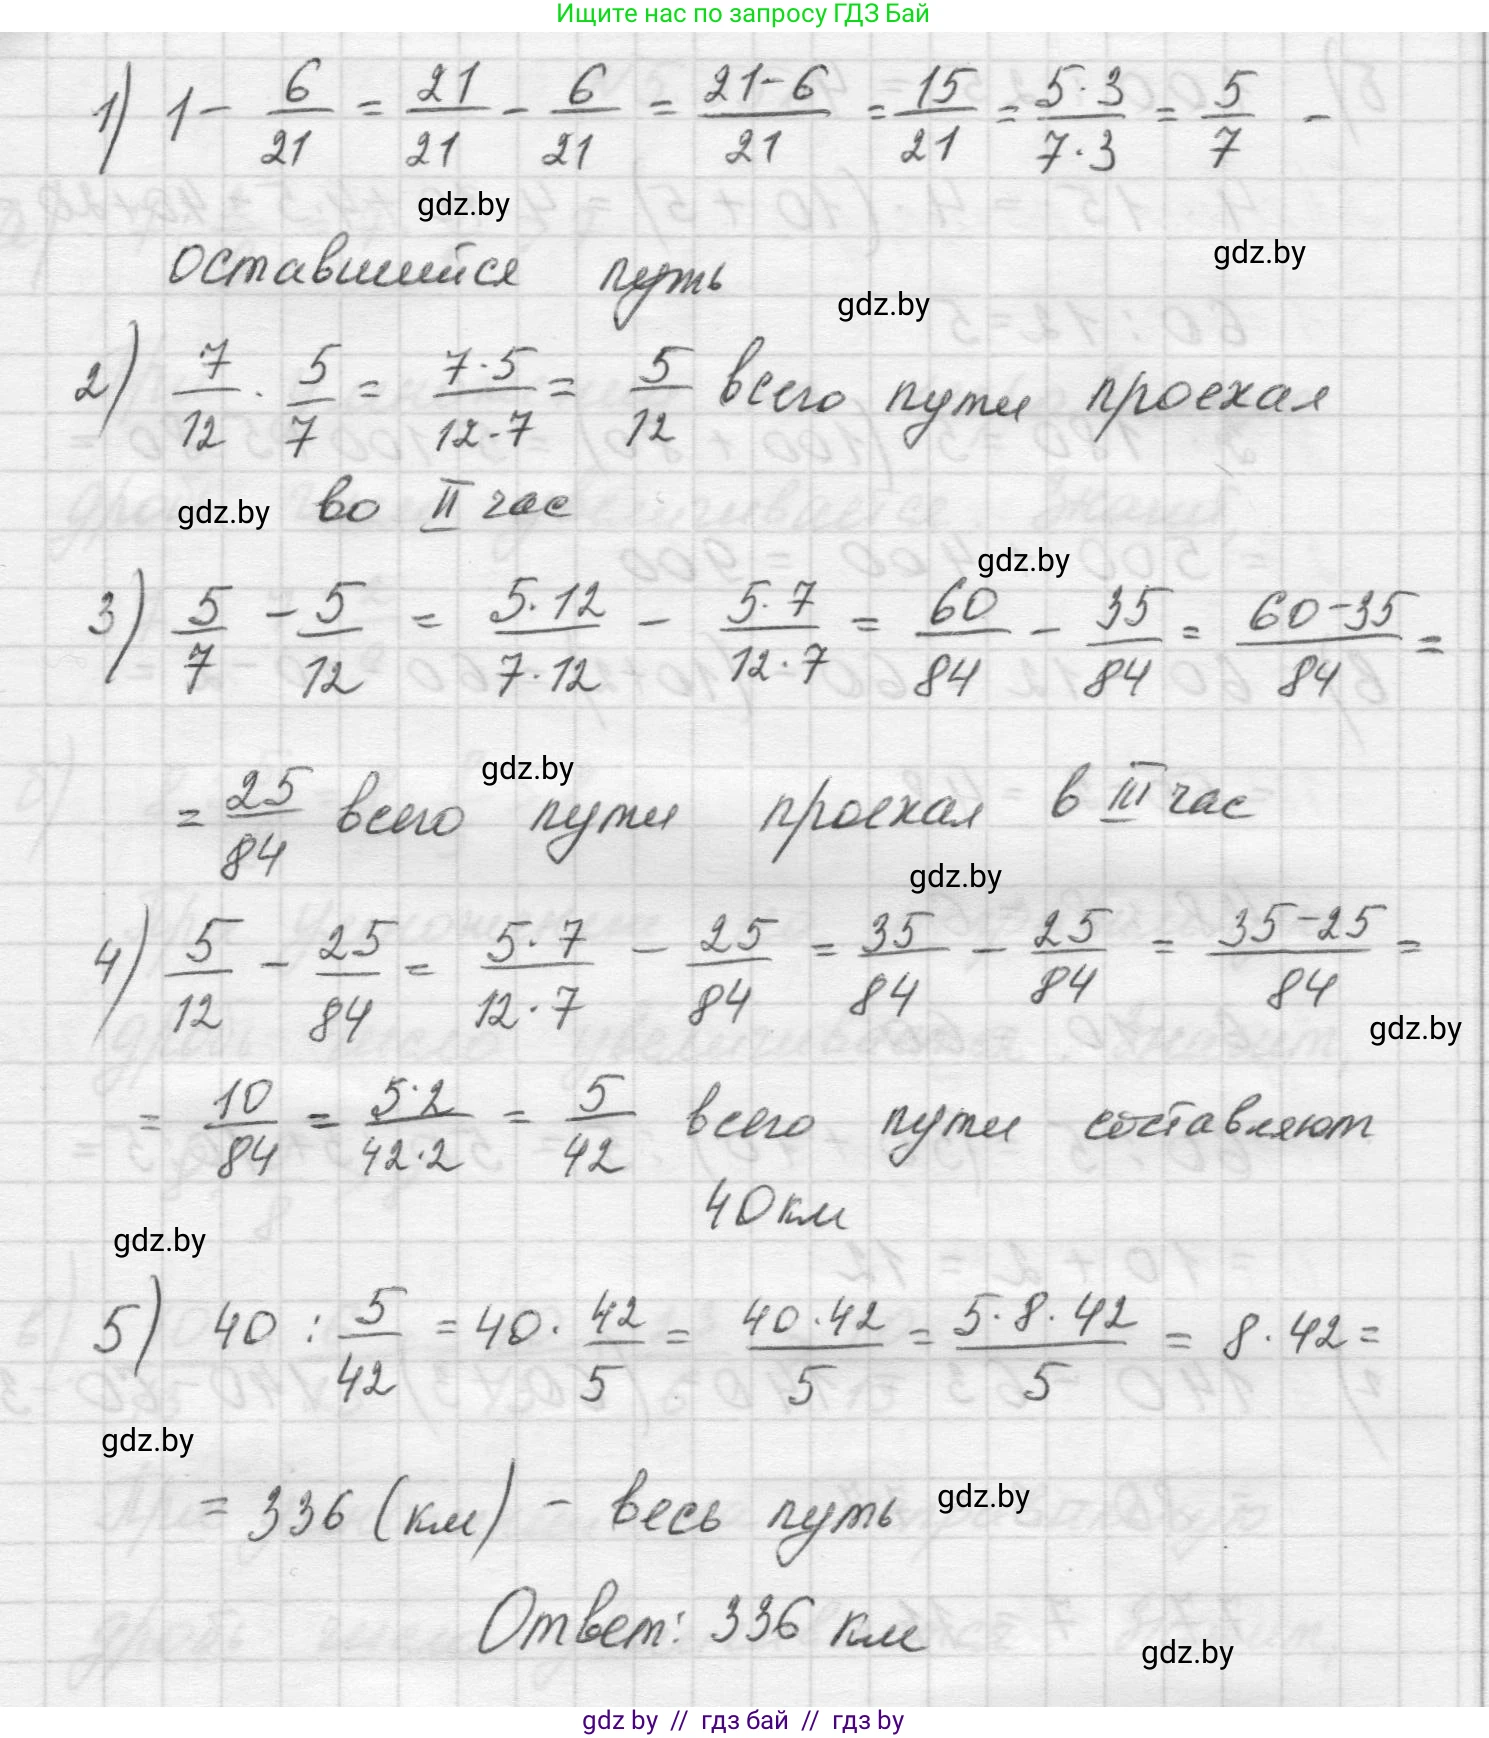 Ищите нас по запросу ГДЗ Бай
1) 1 - 6/21 = 21/21 - 6/21 = (21-6)/21 = 15/21 = (5·3)/(7·3) = 5/7 -
gdz.by
оставшийся путь
gdz.by
gdz.by
2) 7/12 · 5/7 = (7·5)/(12·7) = 5/12 всего пути проехал
gdz.by во II час
gdz.by
3) 5/7 - 5/12 = (5·12)/(7·12) - (5·7)/(12·7) = 60/84 - 35/84 = (60-35)/84 =
gdz.by
= 25/84 всего пути проехал в III час
gdz.by
4) 5/12 - 25/84 = (5·7)/(12·7) - 25/84 = 35/84 - 25/84 = (35-25)/84 =
gdz.by
= 10/84 = (5·2)/(42·2) = 5/42 всего пути составляют
40 км
gdz.by
5) 40 : 5/42 = 40 · 42/5 = (40·42)/5 = (5·8·42)/5 = 8·42 =
gdz.by
= 336 (км) - весь путь
gdz.by
Ответ: 336 км
gdz.by
gdz by // гдз бай // гдз by